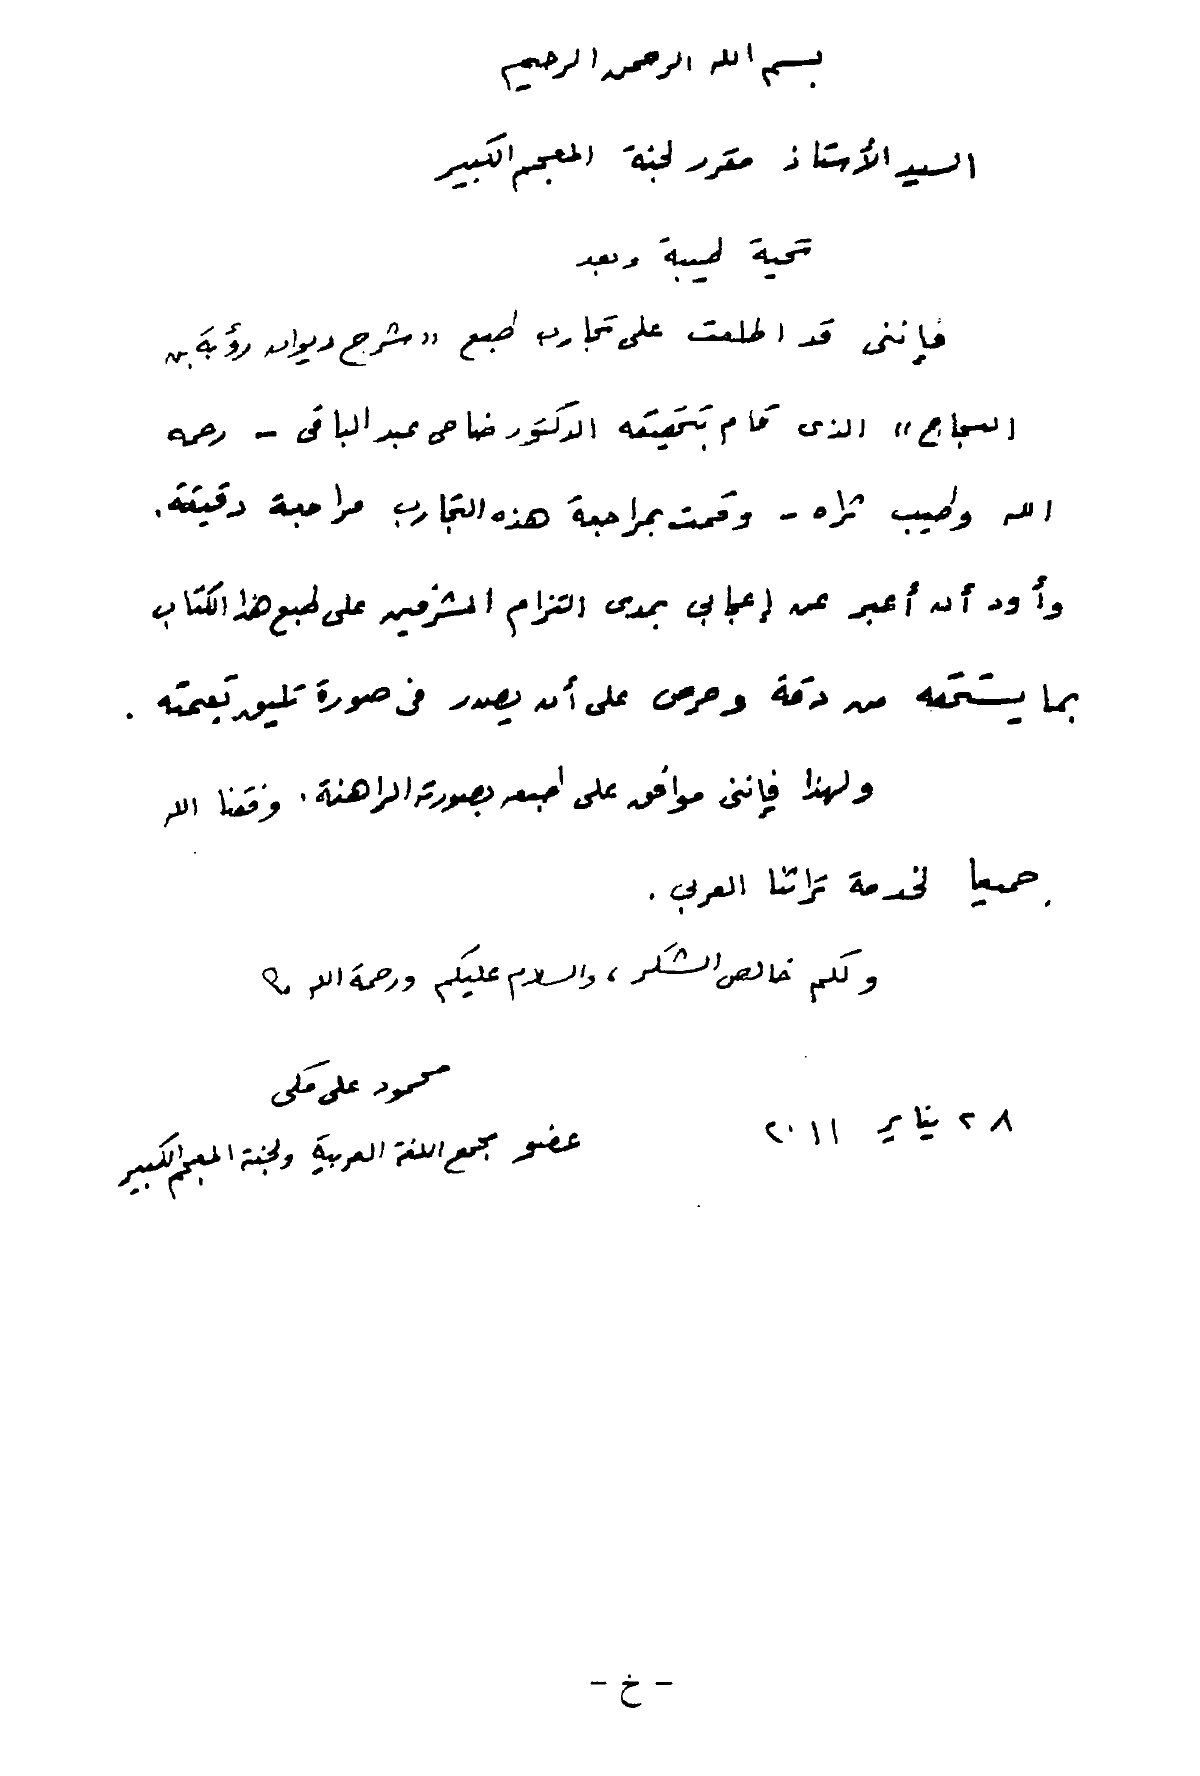 بسم الله الرحمن الرحيم
السيد الأستاذ مقرر لجنة المعجم الكبير
تحية طيبة وبعد
فإننى قد اطلعت على تجارب طبع "شرح ديوان رؤبة بن
العجاج" الذى قام بتحقيقه الدكتور ضاحى عبد الباقى - رحمه
الله وطيب ثراه - وقمت بمراجعة هذه التجارب مراجعة دقيقة.
وأود أن أعبر عن إعجابي بمدى التزام المشرفين على طبع هذا الكتاب
بما يستحقه من دقة وحرص على أن يصدر فى صورة تليق بقيمته .
ولهذا فإننى موافق على طبعه بصورته الراهنة. وفقنا الله
جميعا لخدمة تراثنا العربي .
ولكم خالص الشكر، والسلام عليكم ورحمة الله
محمود على مكى
٢٨ يناير ٢٠١١
عضو مجمع اللغة العربية ولجنة المعجم الكبير
- خ -